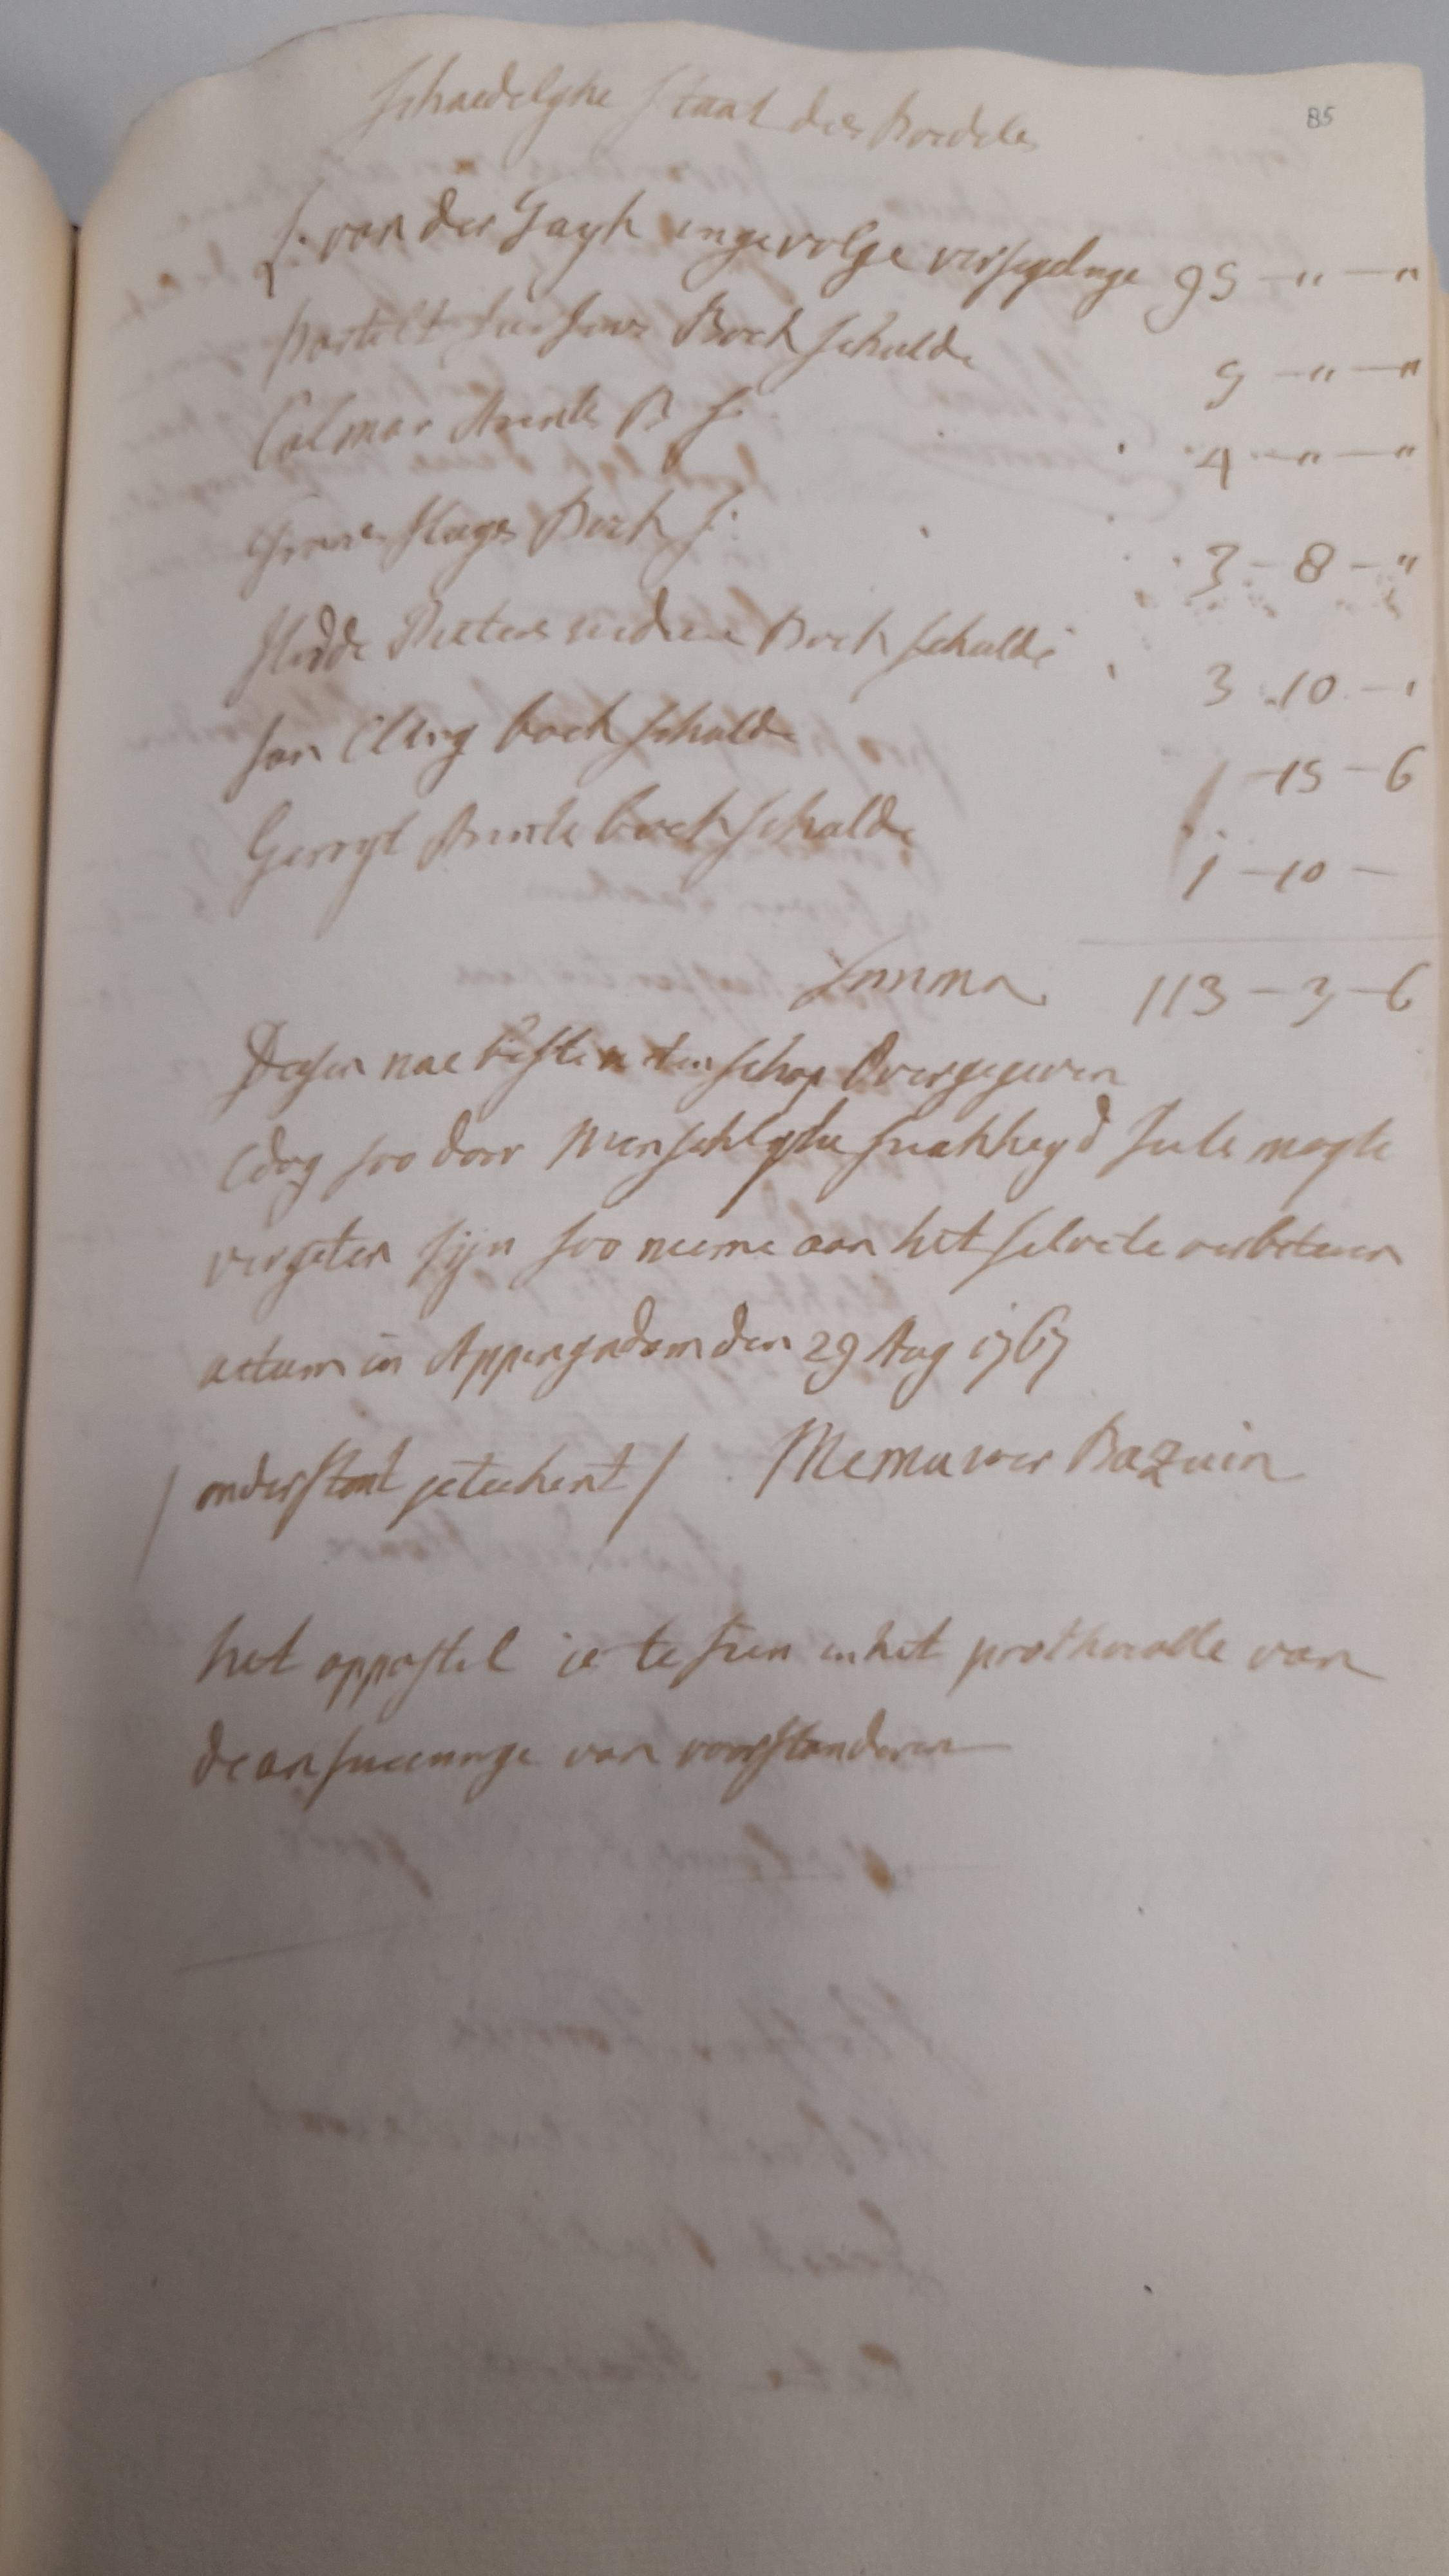 85
Schaedelyke staat des Boedels
J. van der Gagh ingevolge versegelinge 95 - " - "
Bartelt Boek schulde 9 - " - "
Calmar Arents B S: 4 - " - "
Hages Boek S: 3 - 8 - "
Hidde Pieters Boek schulde 3 - 10 -
Jan boek schulde 1 - 15 - 6
Gerryt Arents boek schulde 1 - 10 -
Summa 113 - 3 - 6
Desen nae beste wetenschap Overgegeven
dog soo door Menschlyke swakheyd iets mogte
vergeten sijn soo neeme aan het selve te verbeteren
actum in Appingadam den 29 Aug 1767
/ onderstont getekent / Memuwer Bazuin
het appostil is te sien in het prothocolle van
de answeeringe van voorstanderen